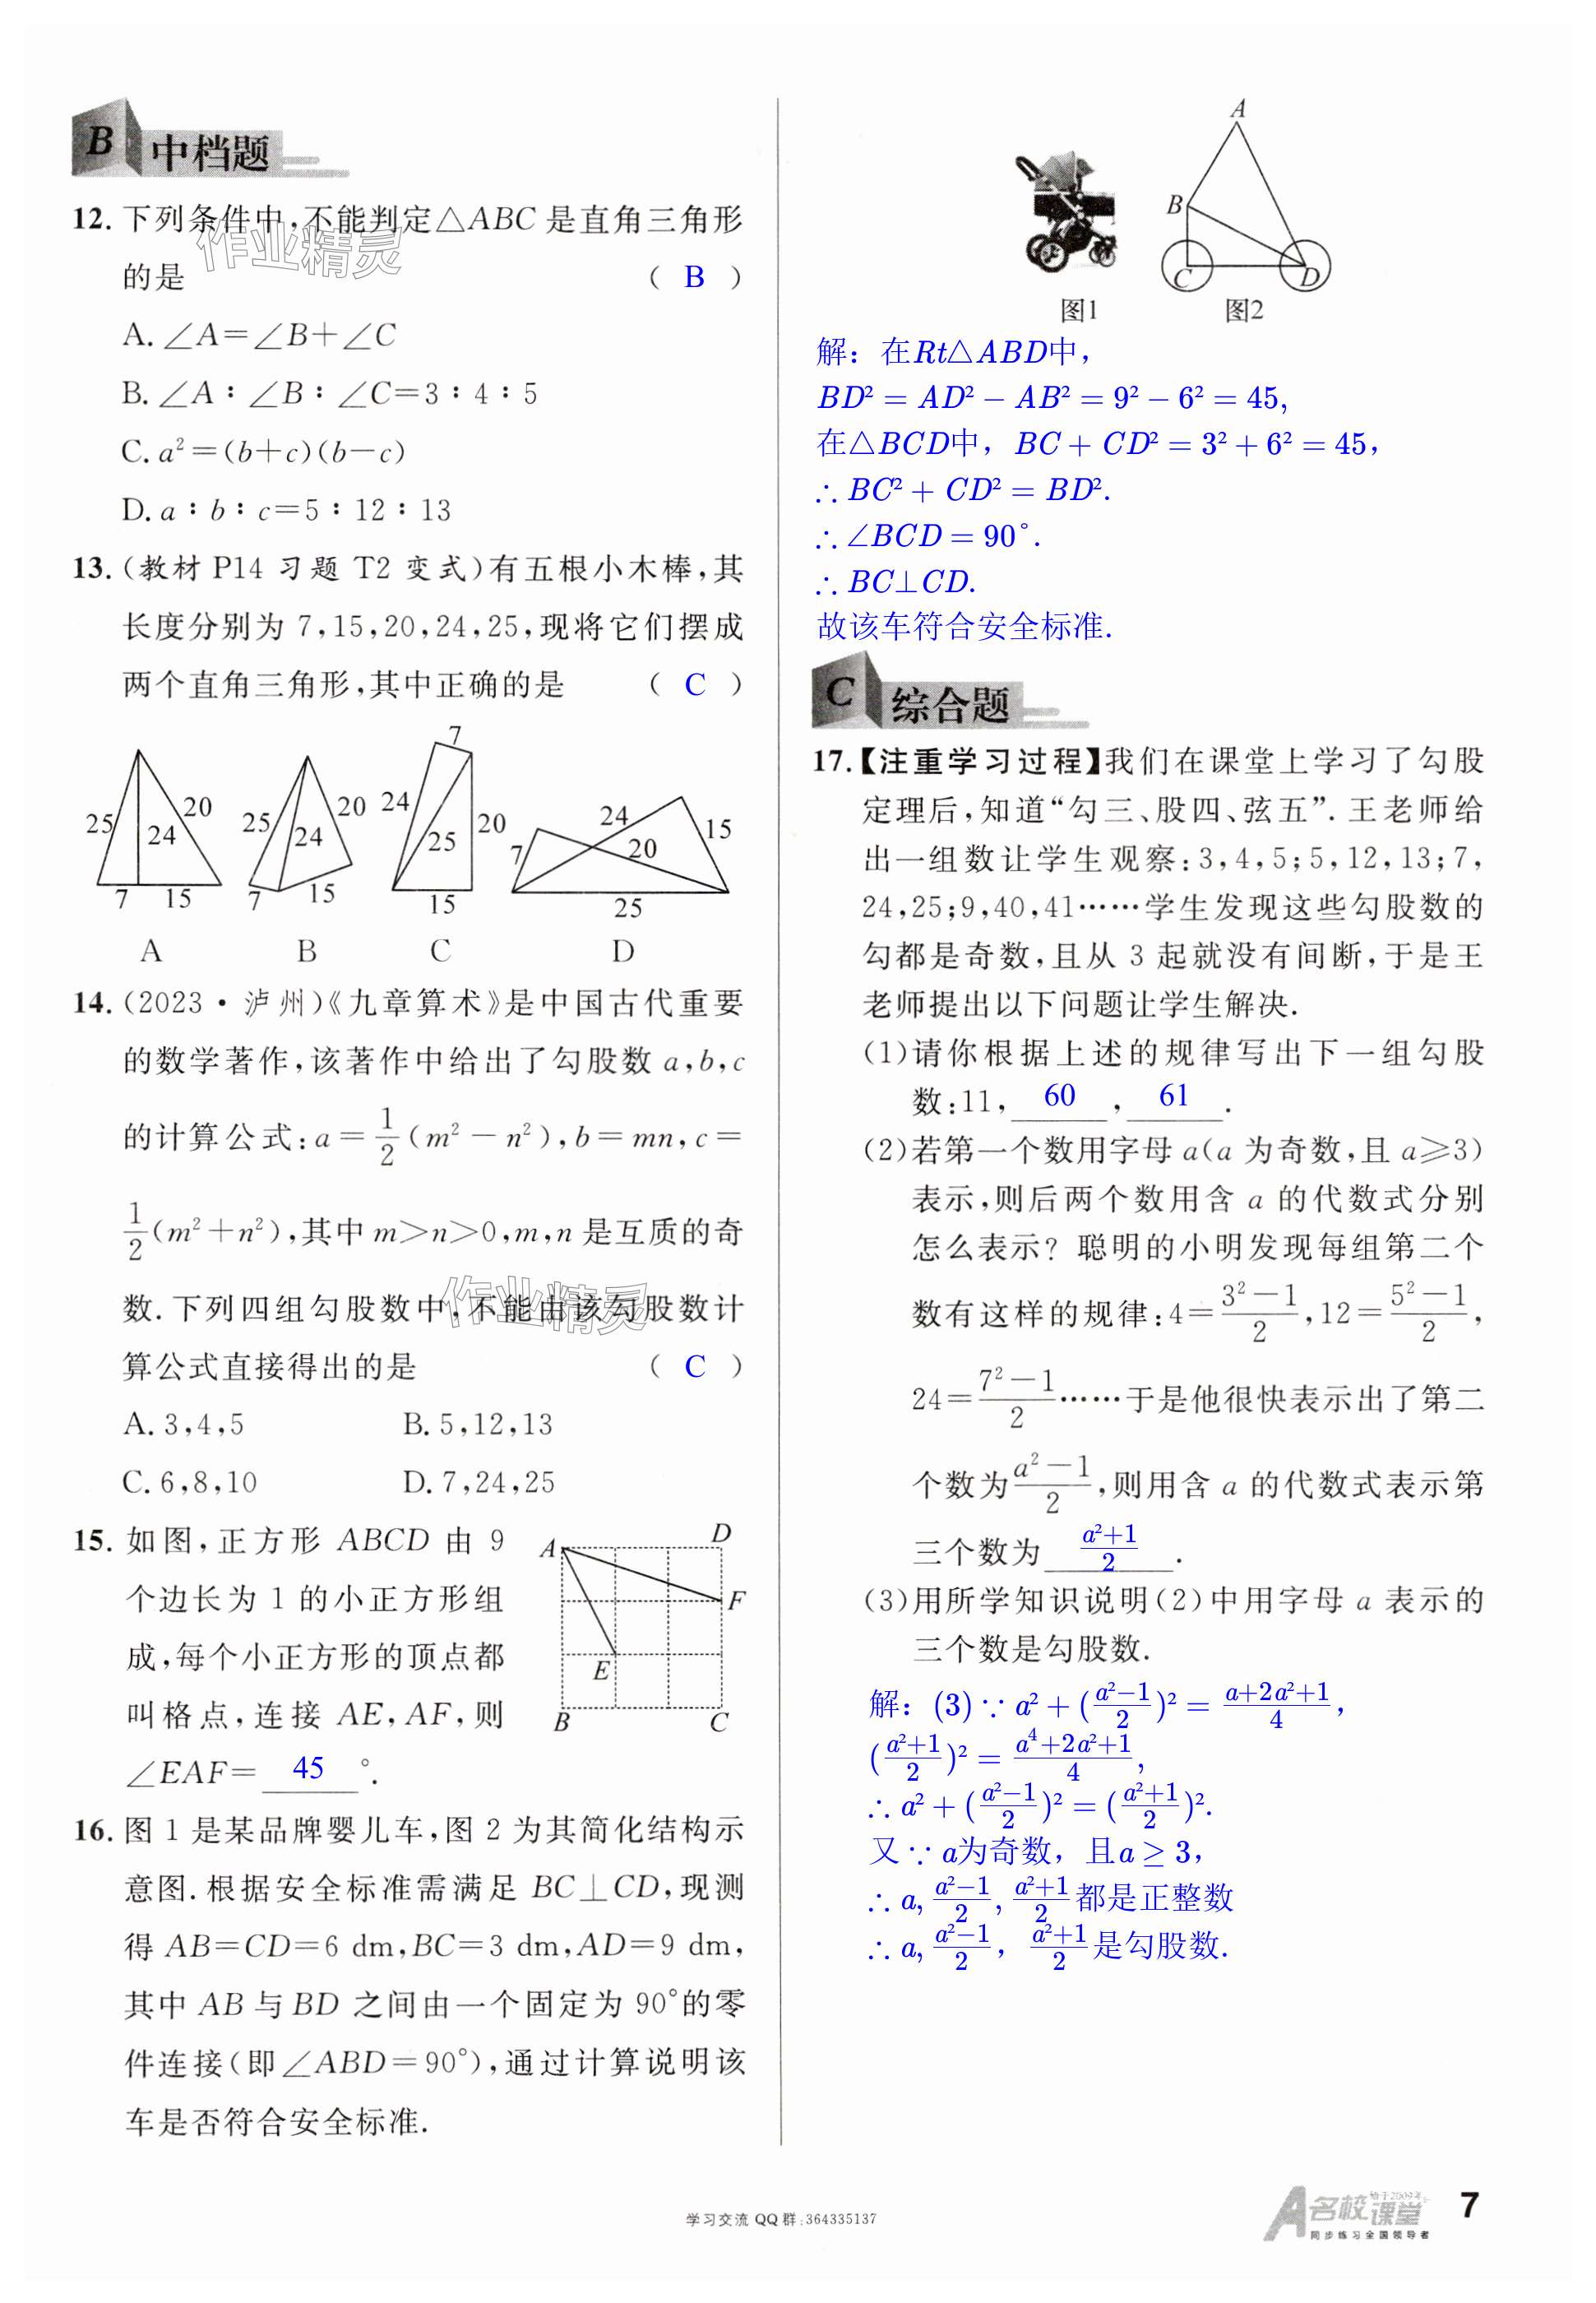 B 中档题
12. 下列条件中,不能判定△ABC 是直角三角形
的是 ( B )
A. ∠A=∠B+∠C
B. ∠A∶∠B∶∠C=3∶4∶5
C. a²=(b+c)(b-c)
D. a∶b∶c=5∶12∶13
13. (教材 P14 习题 T2 变式)有五根小木棒,其
长度分别为 7,15,20,24,25,现将它们摆成
两个直角三角形,其中正确的是 ( C )
25 24 20 7 15
25 24 20 7 15
7 24 25 20 15
7 24 20 15 25
A B C D
14. (2023·泸州)《九章算术》是中国古代重要
的数学著作,该著作中给出了勾股数 a,b,c
的计算公式:a=1/2(m²-n²),b=mn,c=
1/2(m²+n²),其中 m>n>0,m,n 是互质的奇
数.下列四组勾股数中,不能由该勾股数计
算公式直接得出的是 ( C )
A. 3,4,5 B. 5,12,13
C. 6,8,10 D. 7,24,25
15. 如图,正方形 ABCD 由 9
个边长为 1 的小正方形组
成,每个小正方形的顶点都
叫格点,连接 AE,AF,则
∠EAF= 45 °.
A D F E B C
16. 图 1 是某品牌婴儿车,图 2 为其简化结构示
意图.根据安全标准需满足 BC⊥CD,现测
得 AB=CD=6 dm,BC=3 dm,AD=9 dm,
其中 AB 与 BD 之间由一个固定为 90°的零
件连接(即∠ABD=90°),通过计算说明该
车是否符合安全标准.
A B C D
图1 图2
解：在Rt△ABD中，
BD²=AD²-AB²=9²-6²=45,
在△BCD中，BC+CD²=3²+6²=45，
∴BC²+CD²=BD².
∴∠BCD=90°.
∴BC⊥CD.
故该车符合安全标准.
C 综合题
17.【注重学习过程】我们在课堂上学习了勾股
定理后,知道“勾三、股四、弦五”.王老师给
出一组数让学生观察:3,4,5;5,12,13;7,
24,25;9,40,41……学生发现这些勾股数的
勾都是奇数,且从 3 起就没有间断,于是王
老师提出以下问题让学生解决.
(1)请你根据上述的规律写出下一组勾股
数:11, 60 , 61 .
(2)若第一个数用字母 a(a 为奇数,且 a⩾3)
表示,则后两个数用含 a 的代数式分别
怎么表示? 聪明的小明发现每组第二个
数有这样的规律:4=(3²-1)/2,12=(5²-1)/2,
24=(7²-1)/2……于是他很快表示出了第二
个数为(a²-1)/2,则用含 a 的代数式表示第
三个数为 (a²+1)/2 .
(3)用所学知识说明(2)中用字母 a 表示的
三个数是勾股数.
解：(3)∵a²+((a²-1)/2)²=(a+2a²+1)/4，
((a²+1)/2)²=(a⁴+2a²+1)/4,
∴a²+((a²-1)/2)²=((a²+1)/2)².
又∵a为奇数，且a≥3，
∴a,(a²-1)/2,(a²+1)/2都是正整数
∴a,(a²-1)/2，(a²+1)/2是勾股数.
作业精灵
作业精灵
学习交流 QQ 群:364335137
A 名校课堂 始于2009年
同步练习全国领导者
7